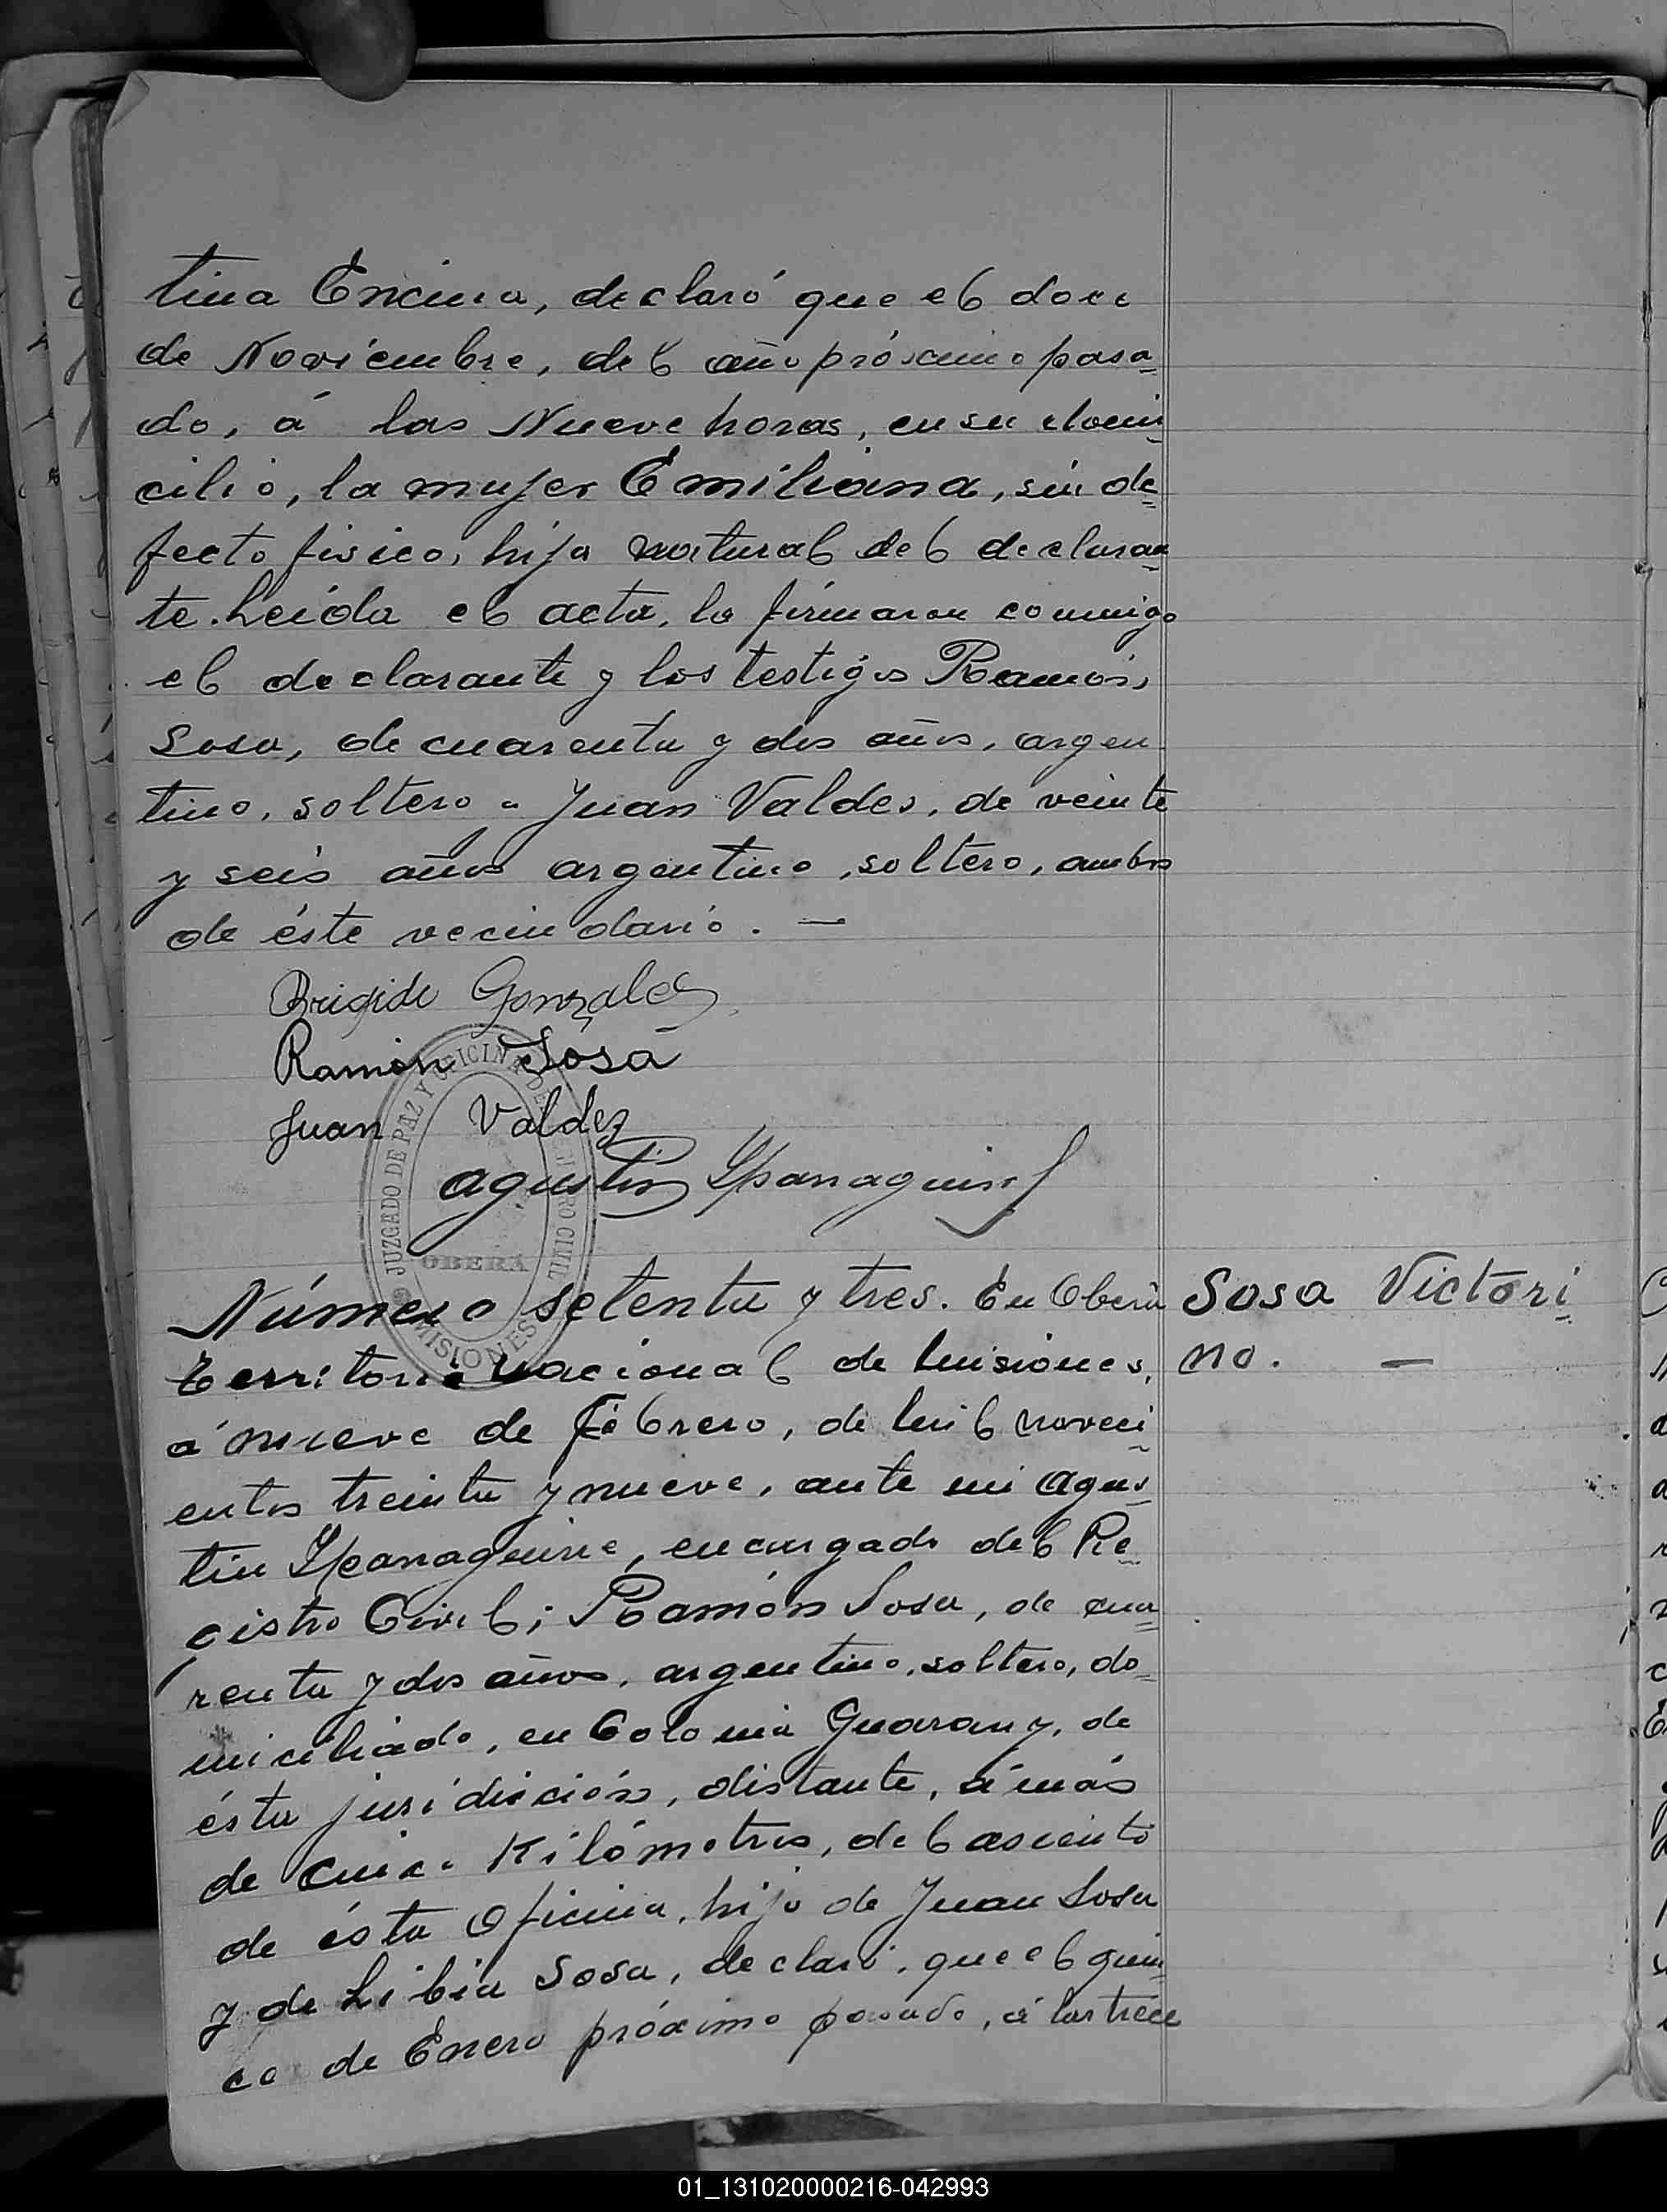 tina Encina, declaró que el doce
de Noviembre, del año próximo pasa
do, á las Nueve horas, en su domi
cilio, la mujer Emiliana, sin de
fecto fisico, hija natural del declaran
te. Leída el acta, la firmaron conmigo
el declarante y los testigos Ramón
Sosa, de cuarenta y dos años, argen
tino, soltero Juan Valdes, de veinte
y seis años argentino, soltero, ambos
de éste vecindario. —
Brigido Gonzalez
Ramón Sosa
Juan Valdez
Agustin
JUZGADO DE PAZ Y OFICINA DEL REGISTRO CIVIL
OBERÁ
MISIONES
Número setenta y tres. En Oberá
Territorio nacional de Misiones,
á nueve de Febrero, de mil noveci
entos treinta y nueve, ante mi Agus
tin encargado del Re
gistro Civil; Ramón Sosa, de cua
renta y dos años, argentino, soltero, do
miciliado, en Colonia Guarany, de
ésta juridición, distante, á más
de cinco Kilómetros, del asiento
de ésta Oficina, hijo de Juan Sosa
y de Libia Sosa, declaró, que el quin
ce de Enero próximo pasado, á las trece
Sosa Victori
no. —
01_131020000216-042993